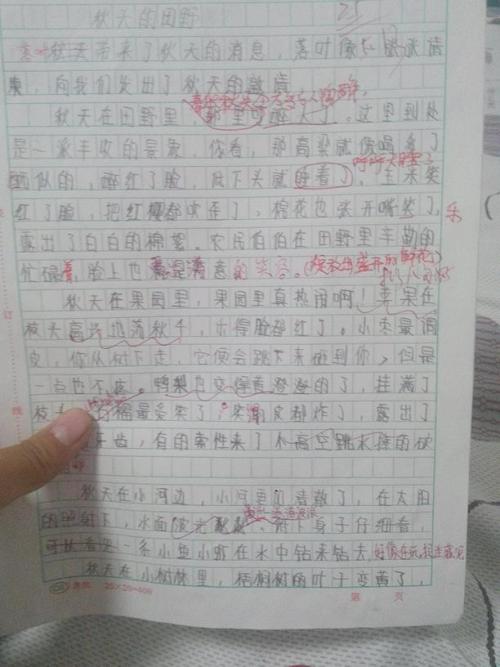 秋天的田野
25
落叶秋天带来了秋天的消息，落叶像
，向我们发出了秋天的邀请
秋天在田野里，那里可醉人了。这里到处
是一派丰收的景象，你看，那高粱就像喝多了
呼呼大睡
酒似的，醉红了脸，低下头就睡着了，玉米笑
红了脸，把红樱都笑歪了，棉花也张开嘴笑了，乐
露出了白白的棉絮。农民伯伯在田野里辛勤的
忙碌着，脸上也满意的笑容。
秋天在果园里，果园里真热闹啊！苹果在
枝头高兴地荡秋千，出得脸都红了。小枣最调
皮，你从树下走，它便会跳下来砸到你，但是
一点也不疼。鸭梨也变得黄澄澄的了，挂满了
枝头，榴最爱笑了，笑得皮都炸了，露出了
牙齿，有的索性来了个高空跳水摔的
秋天在小河边，小河更加清澈了，在太阳
的照射下，水面波光，蹲下身子仔细看，
可以看见一条小鱼小虾在水中钻来钻去，好像在玩捉迷藏呢
秋天在小树林里，梧桐树的叶子变黄了，
25×20=400
第 页